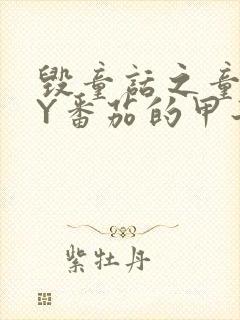 毁童话之童
Y番茄的甲
紫牡丹